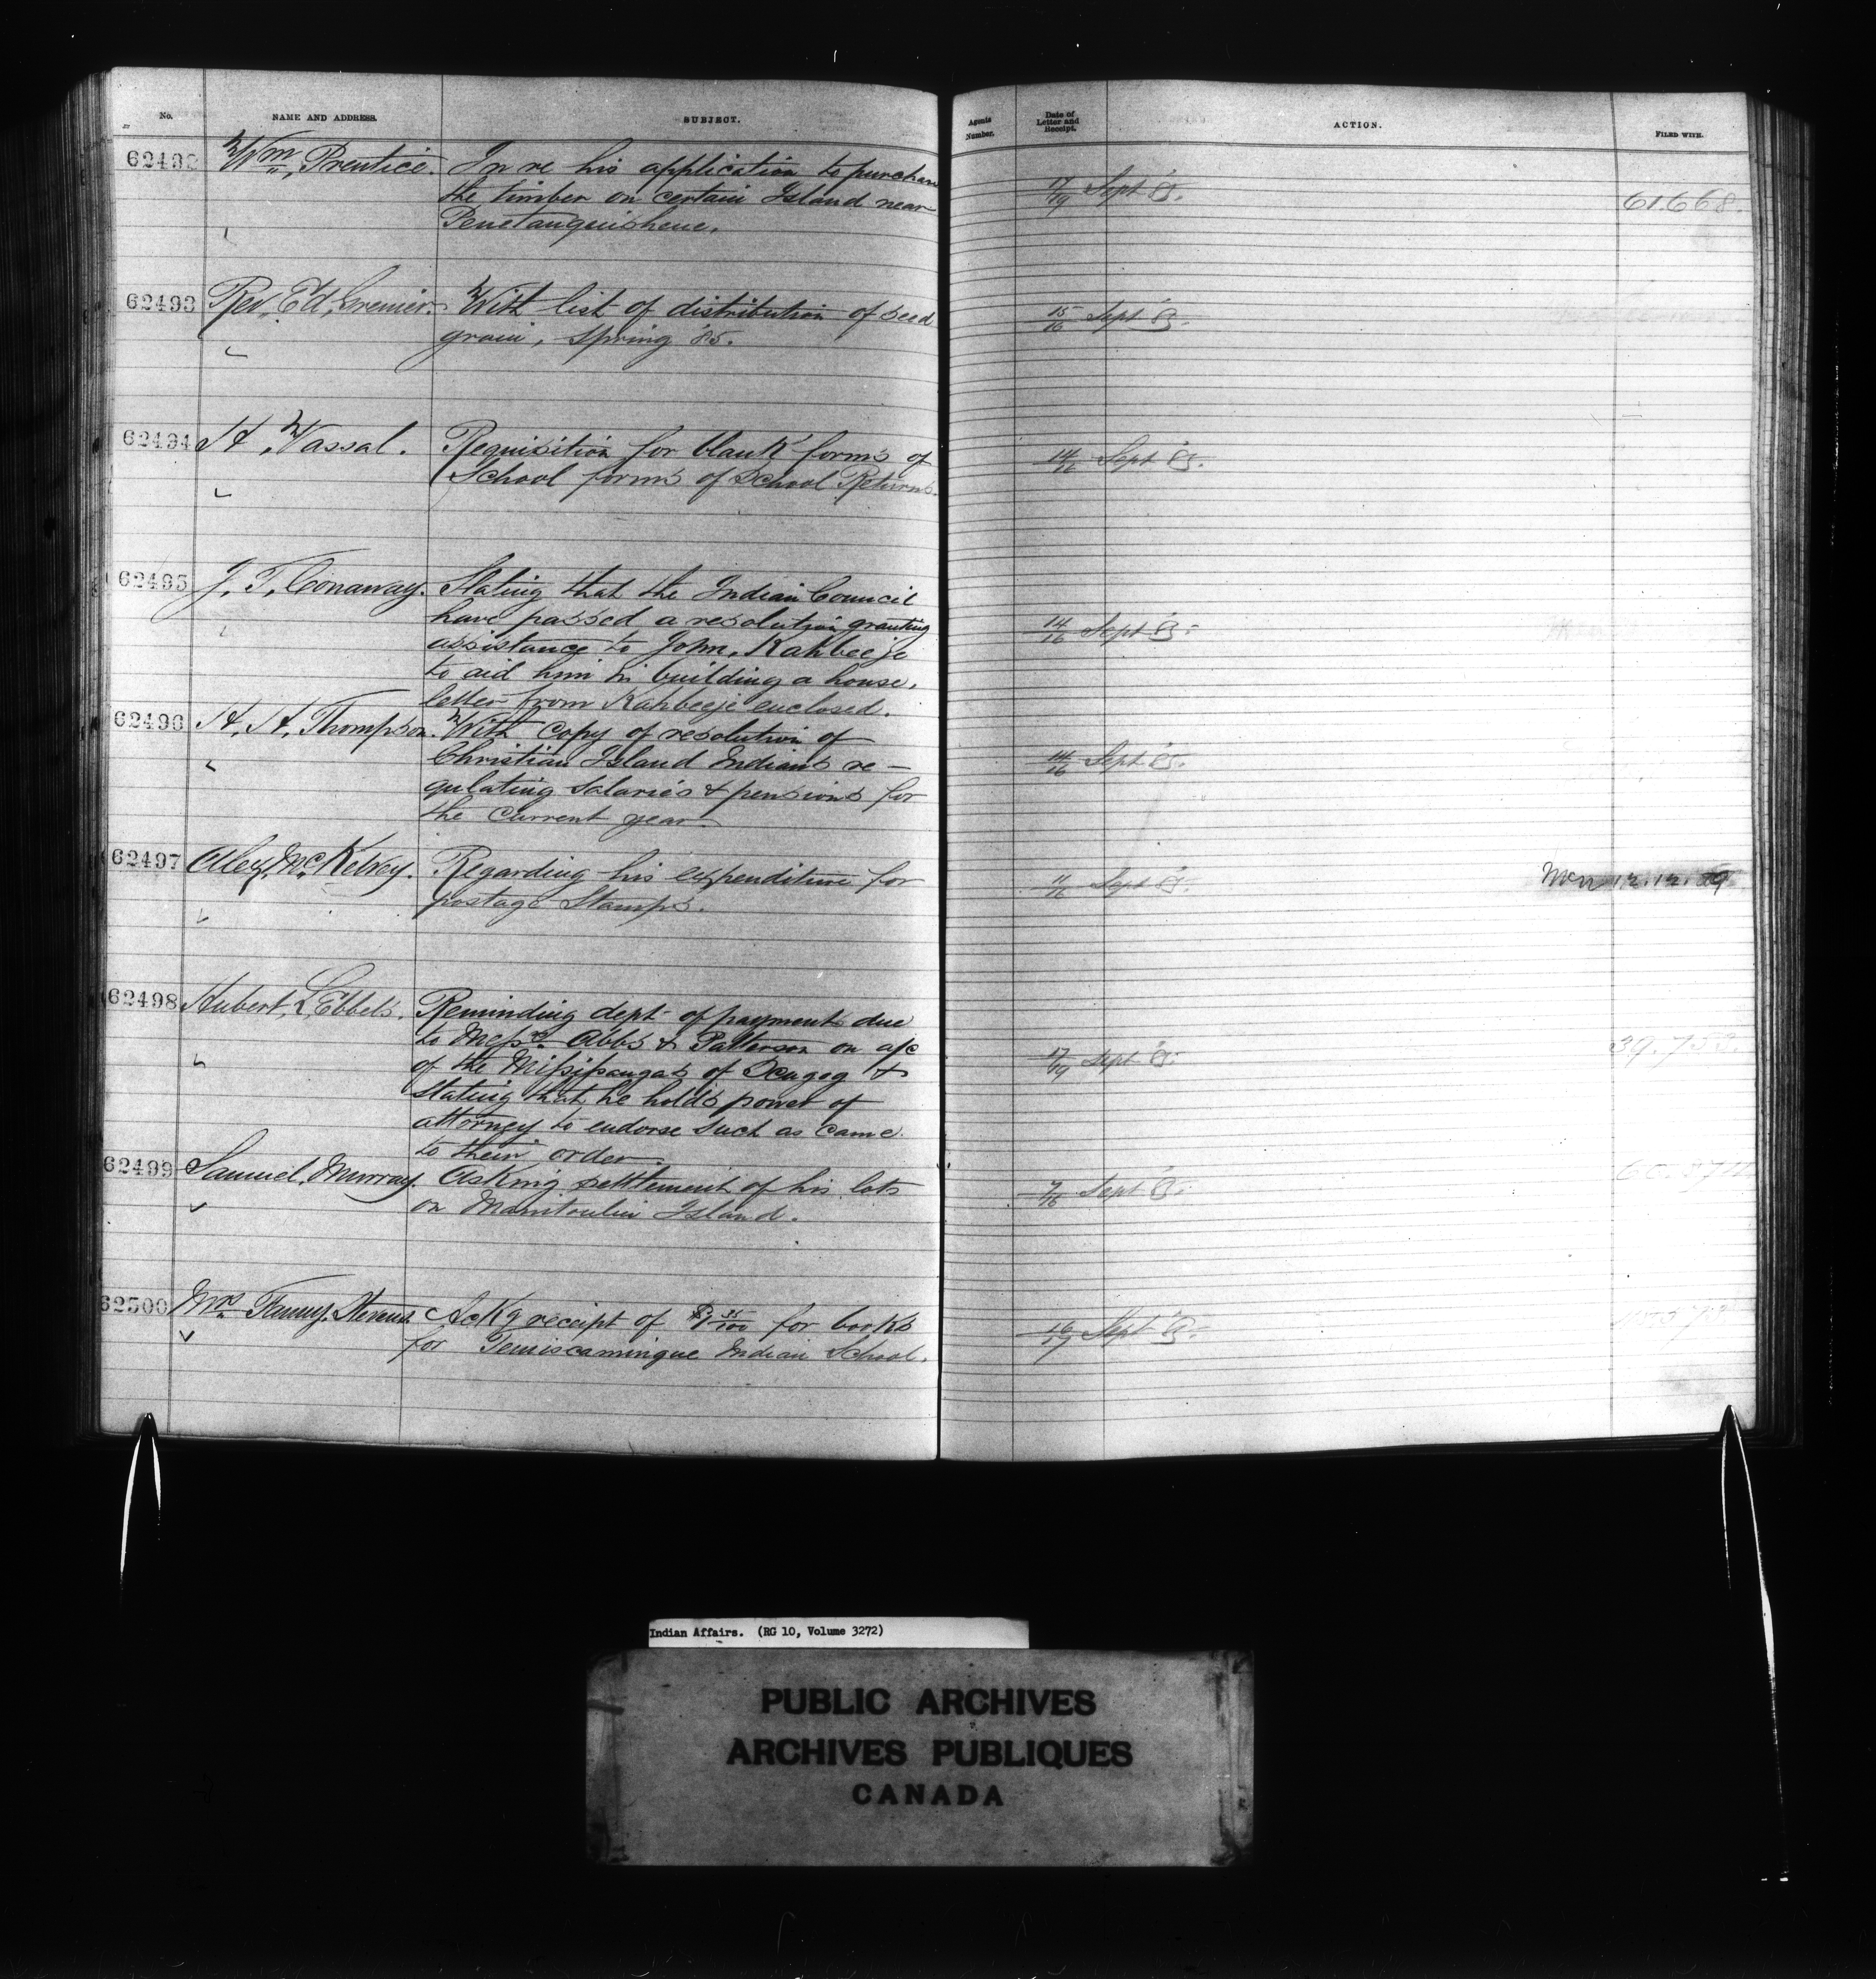 No. NAME AND ADDRESS. SUBJECT. Agents Number. Date of Letter and Receipt. ACTION. FILED WITH.
62492 Wm. Prentice. In re his application to purchase 17/19 Sept 85. 61.668.
the timber on certain Island near
Penetanguishene.
62493 Rev. Ed. Grenier. With list of distribution of seed 15/16 Sept 85.
grain, Spring '85.
62494 H. Vassal. Requisition for blank forms of 14/ Sept 85.
School forms of School Returns.
62495 J. T. Conaway. Stating that the Indian Council
have passed a resolution granting 14/16 Sept 85.
assistance to John, Kahbeeje
to aid him in building a house.
letter from Kahbeeje enclosed.
62496 H. H. Thompson. With copy of resolution of
Christian Island Indians re- 14/16 Sept 85.
gulating salaries & pensions for
the current year.
62497 Alex, McKelvey. Regarding his expenditure for 11/16 Sept 85. 12.12.
postage Stamps.
62498 Hubert, L, Ebbels. Reminding dept of payments due
to Messrs. Abbs & Patterson on a/c 17/19 Sept 85. 39.
of the Missisaugas of Scugog &
stating that he holds power of
attorney to endorse such as came
to their order.
62499 Samuel, Murray. Asking settlement of his lots 7/16 Sept 85.
on Manitoulin Island.
62500 Mrs. Fanny. Stevens. Ackg receipt of for books 16/17 Sept 85.
for Temiscamingue Indian School.
Indian Affairs. (RG 10, Volume 3272)
PUBLIC ARCHIVES
ARCHIVES PUBLIQUES
CANADA